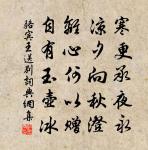 寒更承夜永
涼夕向秋澄
離心何以贈
自有玉壺冰
駱賓王送別詞典網集